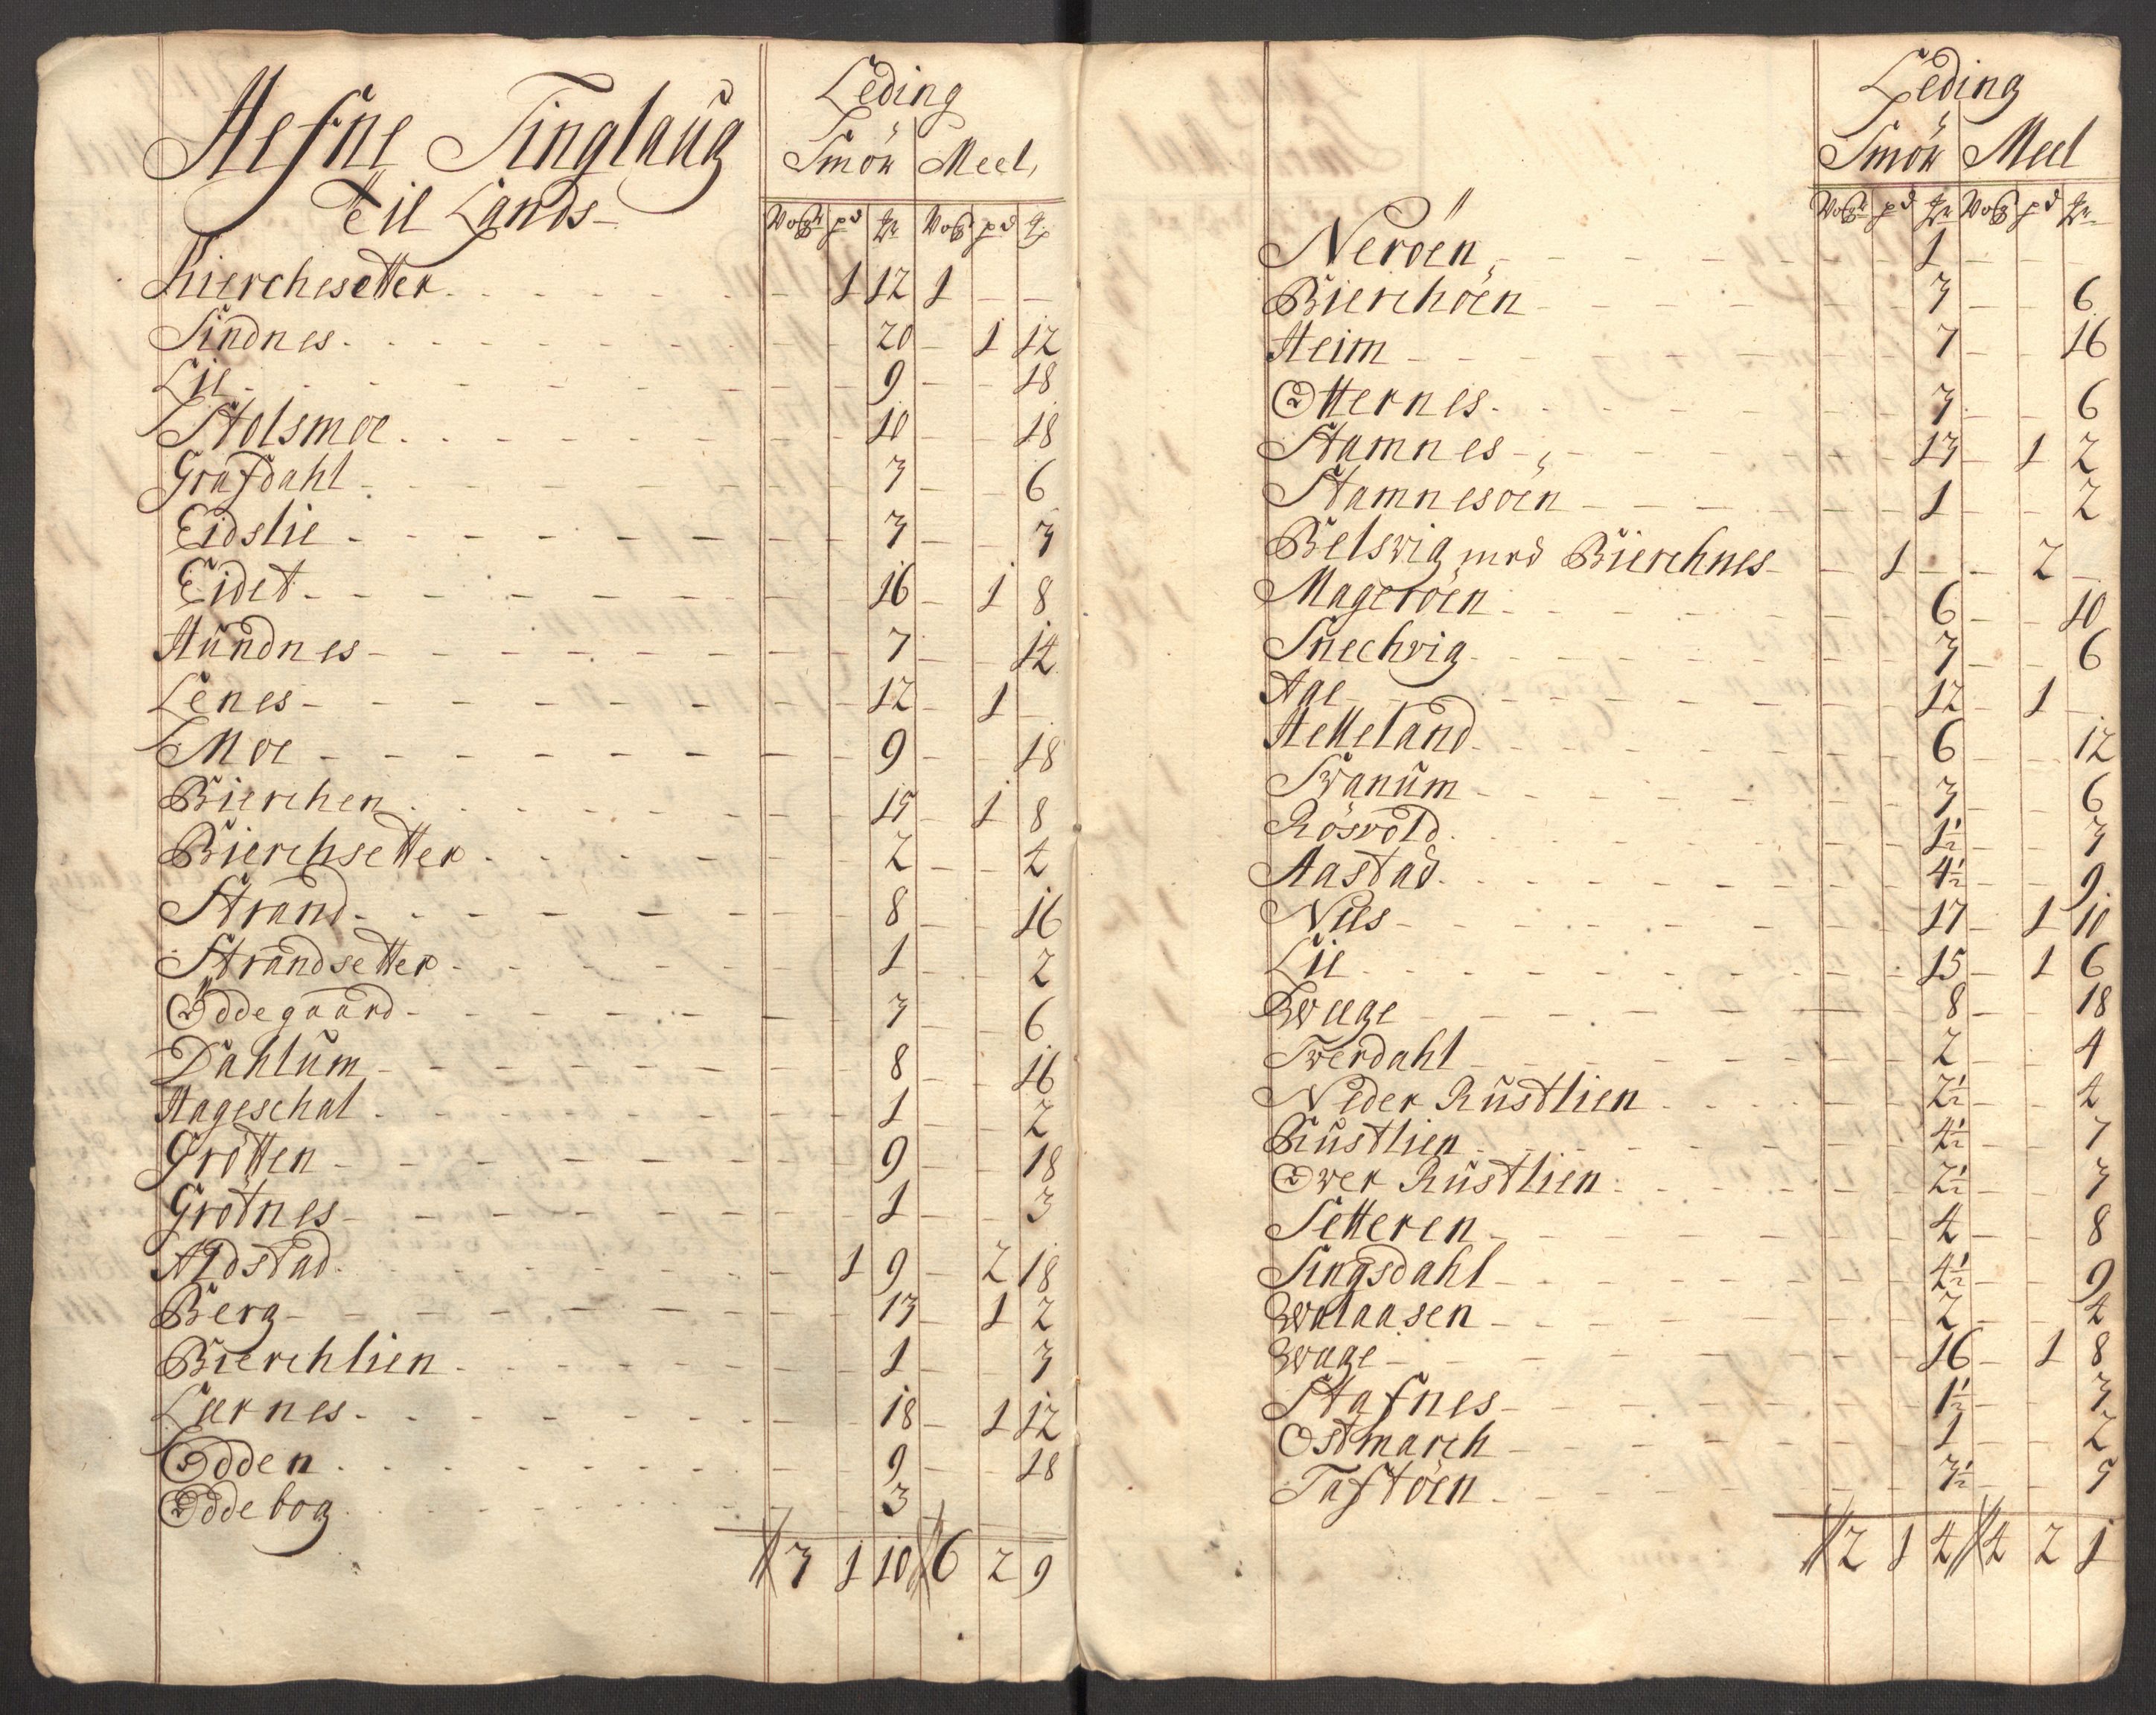 Hefne Tinglaug
Til Lands
Leding
Smör Meel
Kierchesetter 1 12 1
Sindnes 20 1 12
Lie 9 18
Stolsmoe 10 18
Grafdahl 3 6
Eidslie 3 3
Eidet 16 1 8
Hundnes 7 14
Lenes 12 1
Moe 9 18
Bierchen 15 1 8
Bierchsetter 2 4
Strand 8 16
Strandsetter 1 2
Öddegaard 3 6
Dahlum 8 16
Hageschal 1 2
Grötten 9 18
Grötnes 1 3
Aldstad 1 9 2 18
Berg 13 1 2
Bierchlien 1 3
Lernes 18 1 12
Odden 9 18
Oddebog 3
3 1 10 6 2 9
Leding
Smör Meel
Neröen 1
Bierchöen 3 6
Heim 7 16
Otternes 3 6
Stamnes 13 1 2
Stamnesöen 1 2
Belsvig med Bierchnes 1 2
Mageröen 6 10
Snechvig 3 6
Aae 12 1
Helleland 6 12
Svanum 3 6
Rösvold 1½ 3
Aastad 4½ 9
Nees 17 1 10
Lie 15 1 6
Waage 8 18
Tverdahl 2 4
Neder Rustlien 2½ 4
Rustlien 4½ 7
Over Rustlien 2½ 3
Setteren 4 8
Singsdahl 4½ 9
Walaasen 2 4
Wage 16 1 8
Stafnes 1½ 3
Ostmarch 1 2
Taftöen 3½ 5
2 1 4 4 2 1